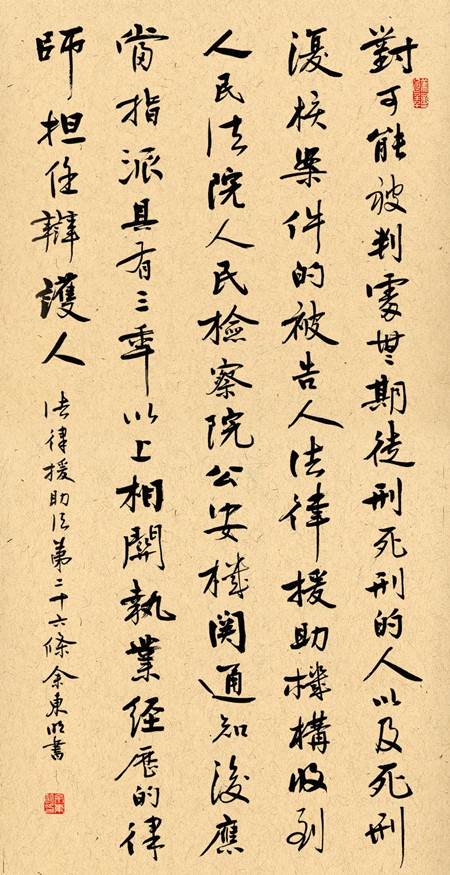 對可能被判處無期徒刑死刑的人以及死刑
復核案件的被告人法律援助機構收到
人民法院人民檢察院公安機関通知後應
當指派具有三年以上相關執業經歷的律
師担任辯護人
法律援助法第二十六條余東明書